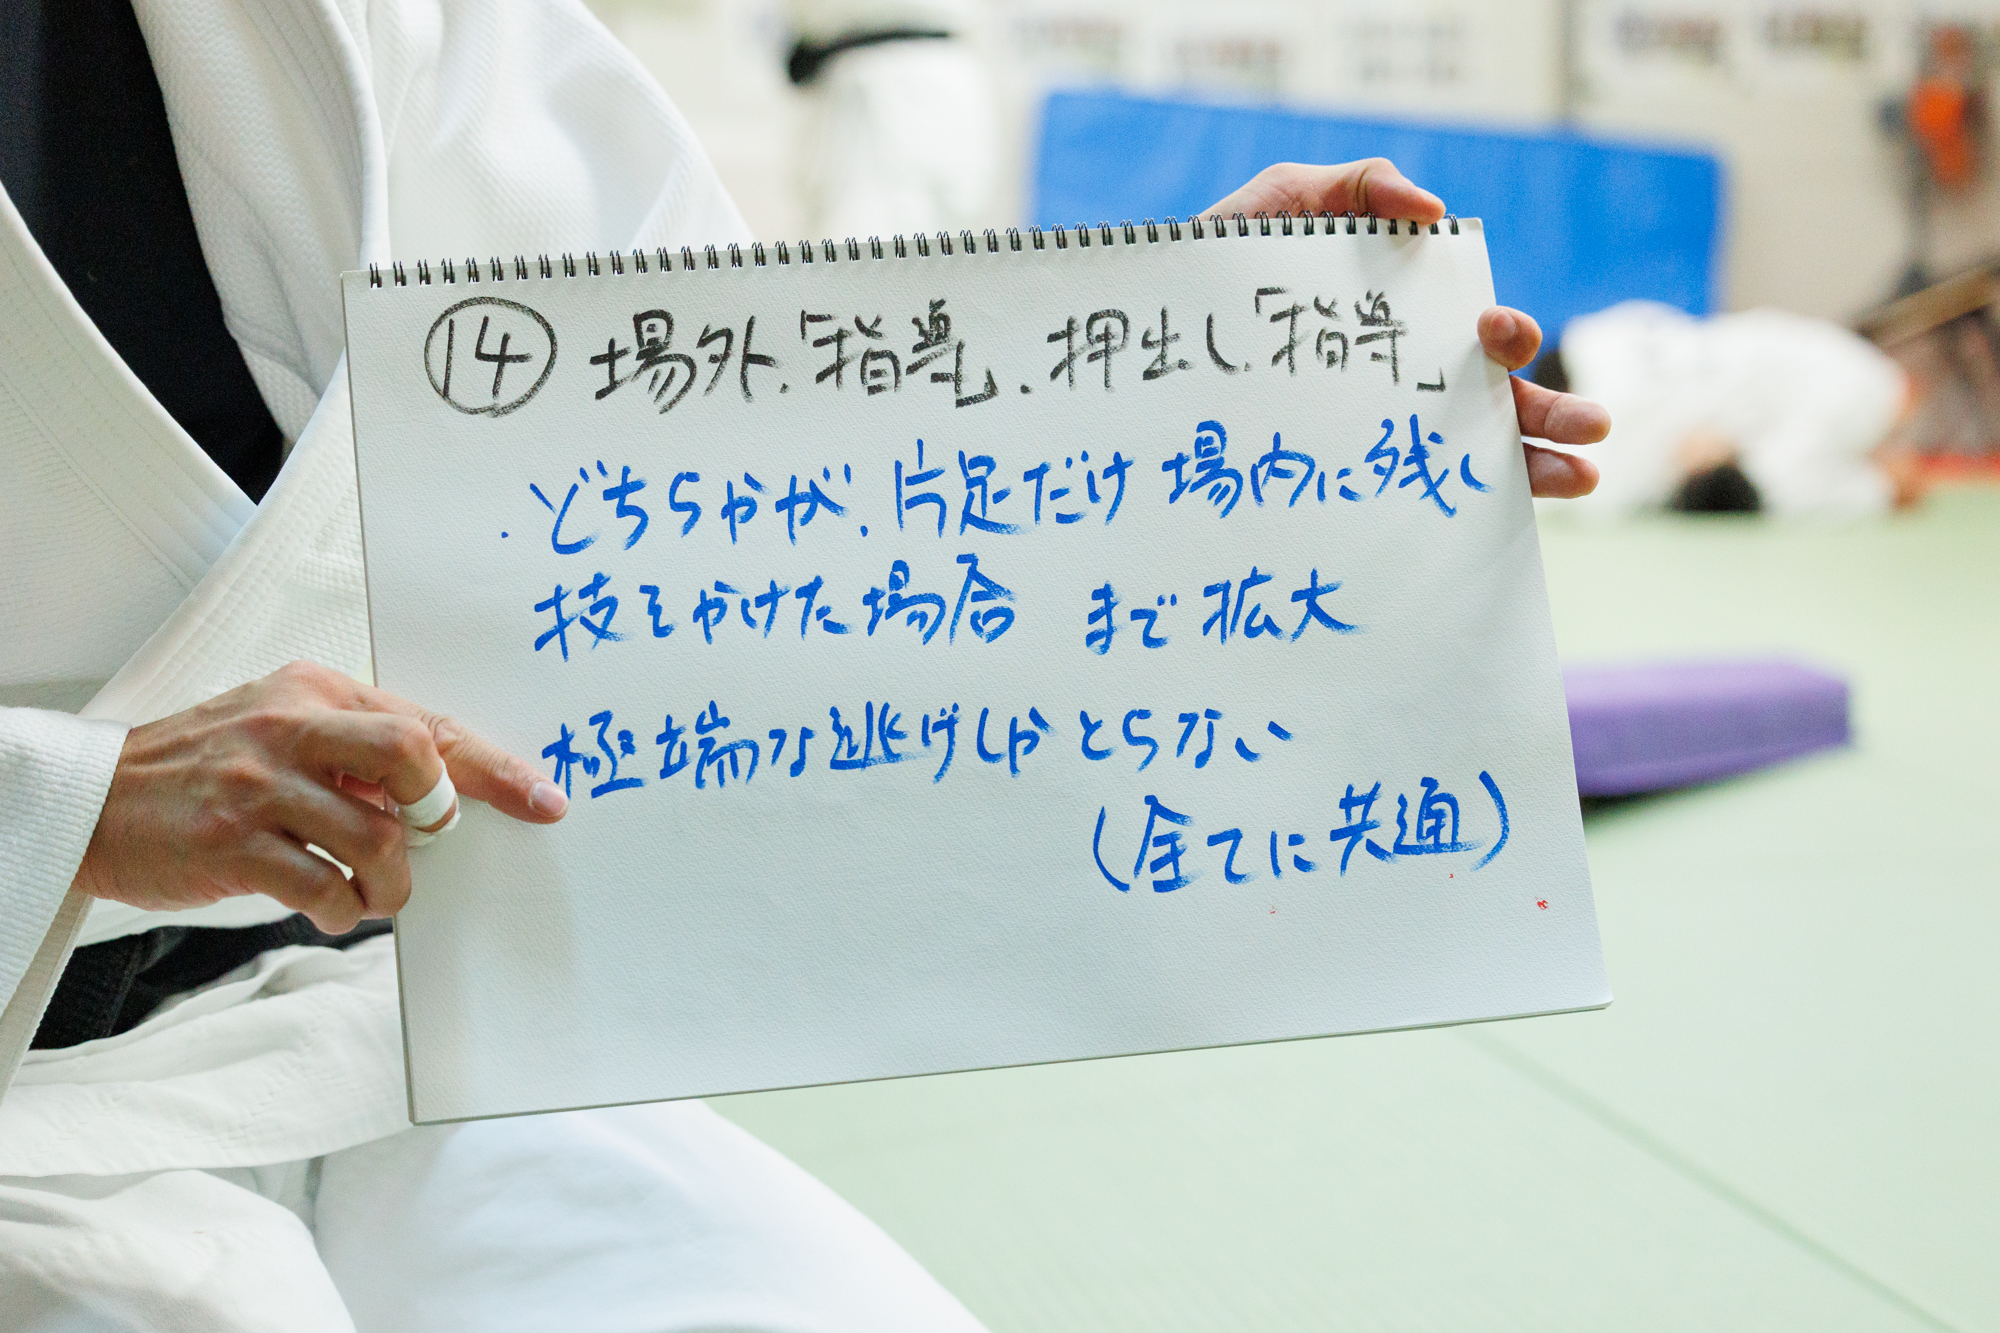 ⑭ 場外「指導」、押出し「指導」
・どちらかが、片足だけ場内に残し
技をかけた場合 まで拡大
極端な逃げしかとらない
(全てに共通)